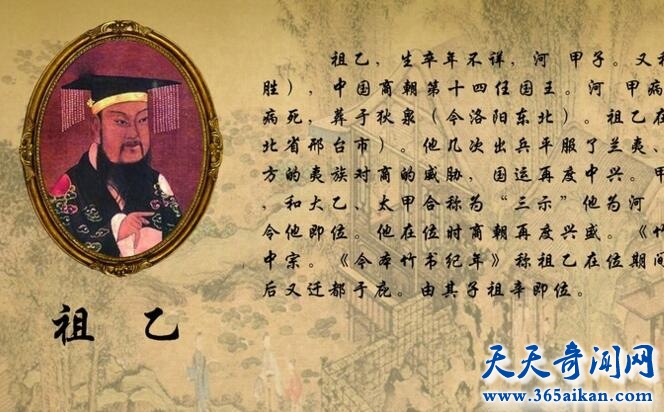 祖乙，生卒年不详，河 甲子。又称
胜），中国商朝第十四任国王。河 甲病
病死，葬于狄泉（今洛阳东北）。祖乙在
北省邢台市）。他几次出兵平服了兰夷、
方的夷族对商的威胁，国运再度中兴。甲
、和大乙、太甲合称为“三示”他为河
令他即位。他在位时商朝再度兴盛。《竹
中宗。《今本竹书纪年》称祖乙在位期间
后又迁都于庇。由其子祖辛即位。
祖 乙
天天奇闻网
www.365aikan.com